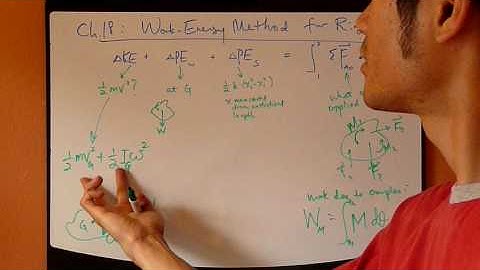 Ch. 18: Work-Energy Method for Ri
ΔKE + ΔPE_W + ΔPE_S = ∫₁² Σ F
½mv²? at G ½k(x₂²-x₁²)
x measured
from unstretched
length
what
applied
W
½mv_G² + ½I_Gω²
F₃
Work due to couples:
W_M = ∫ M dθ
G